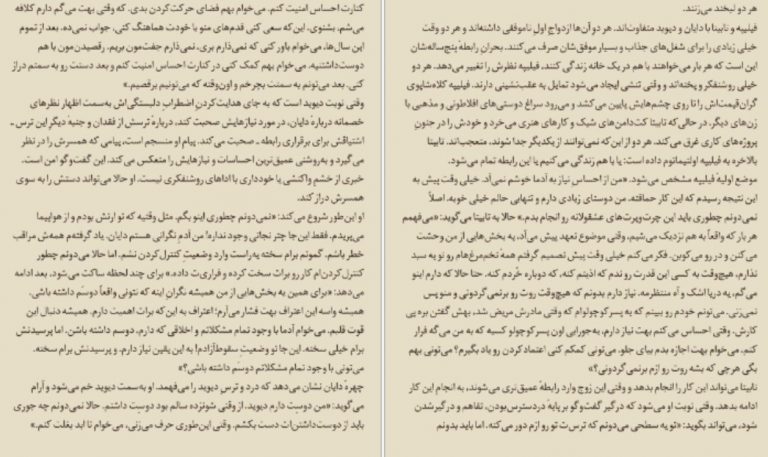 هر دو لبخند می‌زنند.
فیلیپه و تابیتا با دایان و دیوید متفاوت‌اند. هر دو آن‌ها ازدواج اولِ ناموفقی داشته‌اند و هر دو وقت
خیلی زیادی را برای شغل‌های جذاب و بسیار موفق‌شان صرف می‌کنند. بحرانِ رابطهٔ پنج‌ساله‌شان
این است که هر بار می‌خواهند با هم در یک خانه زندگی کنند، فیلیپه نظرش را تغییر می‌دهد. هر دو
خیلی روشنفکر و پخته‌اند و وقتی تنشی ایجاد می‌شود تمایل به عقب‌نشینی دارند. فیلیپه کلاه‌شاپوی
گران‌قیمت‌اش را تا روی چشم‌هایش پایین می‌کشد و می‌رود سراغ دوستی‌های افلاطونی و مذهبی با
زن‌های دیگر. در حالی‌که تابیتا کت‌دامن‌های شیک و کارهای هنری می‌خرد و خودش را در جنونِ
پروژه‌های کاری غرق می‌کند. هر دو از این‌که نمی‌توانند از یکدیگر جدا شوند، متعجب‌اند. تابیتا
بالاخره به فیلیپه اولتیماتوم داده است: یا با هم زندگی می‌کنیم یا این رابطه تمام می‌شود.
موضع اولیهٔ فیلیپه مشخص می‌شود. «من از احساس نیاز به آدما خوشم نمی‌آد. خیلی وقت پیش به
این نتیجه رسیدم که این کار حماقته. من دوستای زیادی دارم و تنهایی حالم خیلی خوبه. اصلاً
نمی‌دونم چطوری باید این چرت‌وپرت‌های عشقولانه رو انجام بدم.» حالا به تابیتا می‌گوید: «می‌فهمم
هر بار که واقعاً به هم نزدیک می‌شیم، وقتی موضوع تعهد پیش می‌آد، یه بخش‌هایی از من وحشت
می‌کنن و در رو می‌کوبن. فکر می‌کنم خیلی وقت پیش تصمیم گرفتم همه تخم‌مرغ‌هام رو تو یه سبد
نذارم، هیچ‌وقت به کسی این قدرت رو ندم که اذیتم کنه، که دوباره خُردم کنه. حتا حالا که دارم اینو
می‌گم، یه دریا اشک و آه منتظرمه. نیاز دارم بدونم که هیچ‌وقت روت رو برنمی‌گردونی و منو پس
نمی‌زنی. می‌تونم خودم رو ببینم که یه پسرکوچولوام که وقتی مادرش مریض شد، بهش گفتن بره پی
کارش. وقتی احساس می‌کنم بهت نیاز دارم، یه‌جورایی اون پسرکوچولو کسیه که به من می‌گه فرار
کنم. می‌خوام بهت اجازه بدم بیای جلو. می‌تونی کمکم کنی اعتماد کردن رو یاد بگیرم؟ می‌تونی بهم
بگی هرچی که بشه روت رو ازم برنمی‌گردونی؟»
تابیتا می‌تواند این کار را انجام بدهد و وقتی این زوج وارد رابطهٔ عمیق‌تری می‌شوند، به انجام این کار
ادامه بدهد. وقتی نوبت او می‌شود که درگیر گفت‌وگو بر پایهٔ دردسترس‌بودن، تفاهم و درگیرشدن
شود، می‌تواند بگوید: «تو یه سطحی می‌دونم که ترس‌ت تو رو ازم دور می‌کنه. اما باید بدونم
کنارت احساس امنیت کنم. می‌خوام بهم فضای حرکت‌کردن بدی. که وقتی بهت می‌گم دارم کلافه
می‌شم، بشنوی. این‌که سعی کنی قدم‌های منو با خودت هماهنگ کنی، جواب نمی‌ده. بعد از تموم
این سال‌ها، می‌خوام باور کنی که نمی‌ذارم بری، نمی‌ذارم جفت‌مون بریم. رقصیدن‌مون با هم
دوست‌داشتنیه. می‌خوام بهم کمک کنی در کنارت احساس امنیت کنم و بعد دستت رو به سمتم دراز
کنی. بعد می‌تونم به سمتت بچرخم و اون‌وقته که می‌تونیم برقصیم.»
وقتی نوبت دیوید است که به جای هدایت‌کردنِ اضطراب دلبستگی‌اش به‌سمت اظهار نظرهای
خصمانه دربارهٔ دایان، در مورد نیازهایش صحبت کند، دربارهٔ ترسش از فقدان و جنبهٔ دیگرِ این ترس ـ
اشتیاقش برای برقراری رابطه ـ صحبت می‌کند. پیام او منسجم است، پیامی که همسرش را در نظر
می‌گیرد و به‌روشنی عمیق‌ترین احساسات و نیازهایش را منعکس می‌کند. این گفت‌وگو امن است.
خبری از خشمِ واکنشی یا خودداری با اداهای روشنفکری نیست. او حالا می‌تواند دستش را به سوی
همسرش دراز کند.
او این‌طور شروع می‌کند: «نمی‌دونم چطوری اینو بگم. مثل وقتیه که تو ارتش بودم و از هواپیما
می‌پریدم. فقط این‌جا چتر نجاتی وجود نداره! من آدم نگرانی هستم دایان. یاد گرفته‌م همه‌ش مراقب
خطر باشم. گمونم برام سخته یه‌راست وارد وضعیت کنترل‌کردن نشم. اما حالا می‌دونم چطور
کنترل‌کردن‌ام کار رو برات سخت کرده و فراری‌ت داده.» برای چند لحظه ساکت می‌شود، بعد ادامه
می‌دهد: «برای همین یه بخش‌هایی از من همیشه نگران اینه که نتونی واقعاً دوسَم داشته باشی.
همیشه واسه این اعتراف بهت فشار می‌آرم؛ اعتراف به این که برات اهمیت دارم. همیشه دنبال این
قوت قلبم. می‌خوام آدما با وجود تمام مشکلاتم و اخلاقی که دارم، دوسَم داشته باشن، اما پرسیدنش
برام خیلی سخته. این‌جا تو وضعیتِ سقوط‌آزادم! به این یقین نیاز دارم، و پرسیدنش برام سخته.
می‌تونی با وجود تمام مشکلاتم دوسَم داشته باشی؟»
چهرهٔ دایان نشان می‌دهد که درد و ترسِ دیوید را می‌فهمد. او به‌سمت دیوید خم می‌شود و آرام
می‌گوید: «من دوسِت دارم دیوید. از وقتی شونزده سالم بود دوسِت داشتم. حالا نمی‌دونم چه جوری
باید از دوست‌داشتن‌ات دست بکشم. وقتی این‌طوری حرف می‌زنی، می‌خوام تا ابد بغلت کنم.»